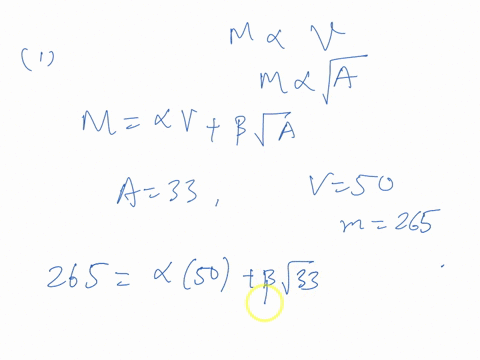 (1)
M ∝ V
m ∝ √A
M = αV + β√A
A = 33 , V = 50
m = 265
265 = α (50) + β√33